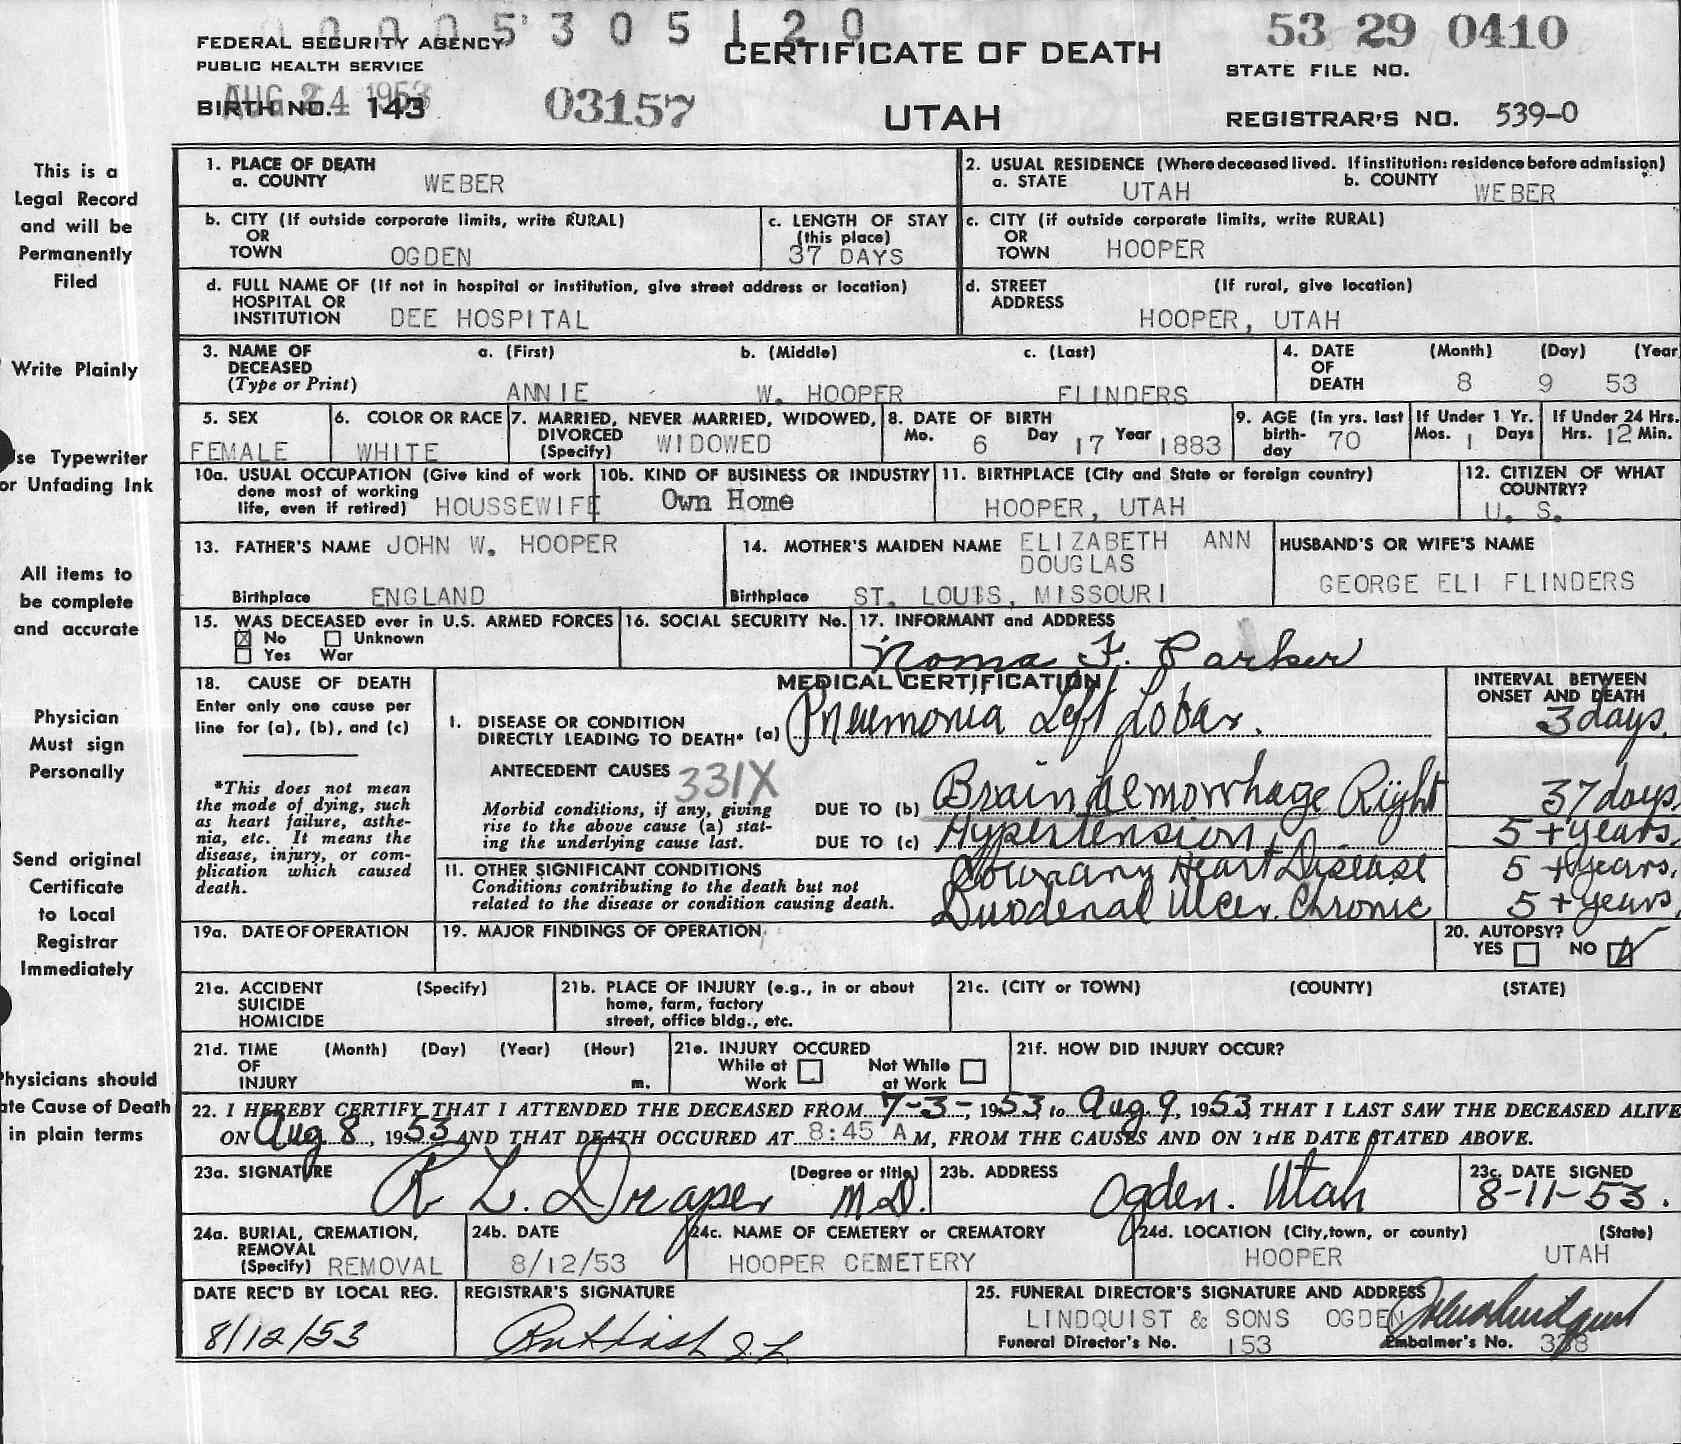 00005305120
53 29 0410
FEDERAL SECURITY AGENCY
PUBLIC HEALTH SERVICE
CERTIFICATE OF DEATH
STATE FILE NO.
AUG 24 1953
BIRTH NO. 143
03157
UTAH
REGISTRAR'S NO. 539-0
This is a
Legal Record
and will be
Permanently
Filed
Write Plainly
Use Typewriter
or Unfading Ink
All items to
be complete
and accurate
Physician
Must sign
Personally
Send original
Certificate
to Local
Registrar
Immediately
Physicians should
ate Cause of Death
in plain terms
1. PLACE OF DEATH
a. COUNTY WEBER
2. USUAL RESIDENCE (Where deceased lived. If institution: residence before admission)
a. STATE UTAH b. COUNTY WEBER
b. CITY (If outside corporate limits, write RURAL)
OR
TOWN OGDEN
c. LENGTH OF STAY
(this place)
37 DAYS
c. CITY (if outside corporate limits, write RURAL)
OR
TOWN HOOPER
d. FULL NAME OF (If not in hospital or institution, give street address or location)
HOSPITAL OR
INSTITUTION DEE HOSPITAL
d. STREET (If rural, give location)
ADDRESS
HOOPER, UTAH
3. NAME OF DECEASED (Type or Print)
a. (First) b. (Middle) c. (Last)
ANNIE W. HOOPER FLINDERS
4. DATE OF DEATH (Month) (Day) (Year
8 9 53
5. SEX
FEMALE
6. COLOR OR RACE
WHITE
7. MARRIED, NEVER MARRIED, WIDOWED,
DIVORCED
(Specify) WIDOWED
8. DATE OF BIRTH
Mo. 6 Day 17 Year 1883
9. AGE (In yrs. last
birth-
day 70
If Under 1 Yr.
Mos. 1 Days
If Under 24 Hrs.
Hrs. 12 Min.
10a. USUAL OCCUPATION (Give kind of work
done most of working
life, even if retired) HOUSSEWIFE
10b. KIND OF BUSINESS OR INDUSTRY
Own Home
11. BIRTHPLACE (City and State or foreign country)
HOOPER, UTAH
12. CITIZEN OF WHAT
COUNTRY?
U. S.
13. FATHER'S NAME JOHN W. HOOPER
Birthplace ENGLAND
14. MOTHER'S MAIDEN NAME ELIZABETH ANN
DOUGLAS
Birthplace ST. LOUIS, MISSOURI
HUSBAND'S OR WIFE'S NAME
GEORGE ELI FLINDERS
15. WAS DECEASED ever in U.S. ARMED FORCES
No Unknown
Yes War
16. SOCIAL SECURITY No.
17. INFORMANT and ADDRESS
Noma F. Parker
18. CAUSE OF DEATH
Enter only one cause per
line for (a), (b), and (c)
*This does not mean
the mode of dying, such
as heart failure, asthe-
nia, etc. It means the
disease, injury, or com-
plication which caused
death.
MEDICAL CERTIFICATION
INTERVAL BETWEEN
ONSET AND DEATH
I. DISEASE OR CONDITION
DIRECTLY LEADING TO DEATH* (a) Pneumonia Left Lobar. 3 days.
ANTECEDENT CAUSES 331X
Morbid conditions, if any, giving
rise to the above cause (a) stat-
ing the underlying cause last.
DUE TO (b) Brain hemorrhage Right 37 days.
DUE TO (c) Hypertension, 5+ years.
II. OTHER SIGNIFICANT CONDITIONS
Conditions contributing to the death but not
related to the disease or condition causing death.
Coronary Heart Disease 5+ years.
Duodenal Ulcer. Chronic 5+ years.
19a. DATE OF OPERATION
19. MAJOR FINDINGS OF OPERATION
20. AUTOPSY?
YES NO
21a. ACCIDENT (Specify)
SUICIDE
HOMICIDE
21b. PLACE OF INJURY (e.g., in or about
home, farm, factory
street, office bldg., etc.
21c. (CITY or TOWN) (COUNTY) (STATE)
21d. TIME (Month) (Day) (Year) (Hour)
OF
INJURY m.
21e. INJURY OCCURED
While at Work Not While at Work
21f. HOW DID INJURY OCCUR?
22. I HEREBY CERTIFY THAT I ATTENDED THE DECEASED FROM 7-3-, 1953 to Aug. 9, 1953 THAT I LAST SAW THE DECEASED ALIVE
ON Aug 8, 1953 AND THAT DEATH OCCURED AT 8:45 A M, FROM THE CAUSES AND ON THE DATE STATED ABOVE.
23a. SIGNATURE (Degree or title)
R L. Draper M.D.
23b. ADDRESS
Ogden. Utah
23c. DATE SIGNED
8-11-53.
24a. BURIAL, CREMATION,
REMOVAL
(Specify) REMOVAL
24b. DATE
8/12/53
24c. NAME OF CEMETERY or CREMATORY
HOOPER CEMETERY
24d. LOCATION (City,town, or county) (State)
HOOPER UTAH
DATE REC'D BY LOCAL REG.
8/12/53
REGISTRAR'S SIGNATURE
25. FUNERAL DIRECTOR'S SIGNATURE AND ADDRESS
LINDQUIST & SONS OGDEN
Funeral Director's No. 153 Embalmer's No. 338